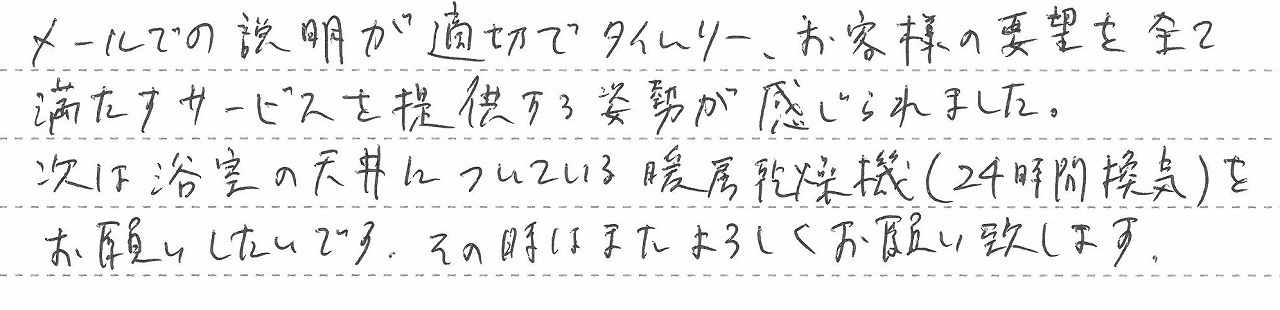 メールでの説明が適切でタイムリー、お客様の要望を全て
満たすサービスを提供する姿勢が感じられました。
次は浴室の天井についている暖房乾燥機(24時間換気)を
お願いしたいです。その時はまたよろしくお願い致します。